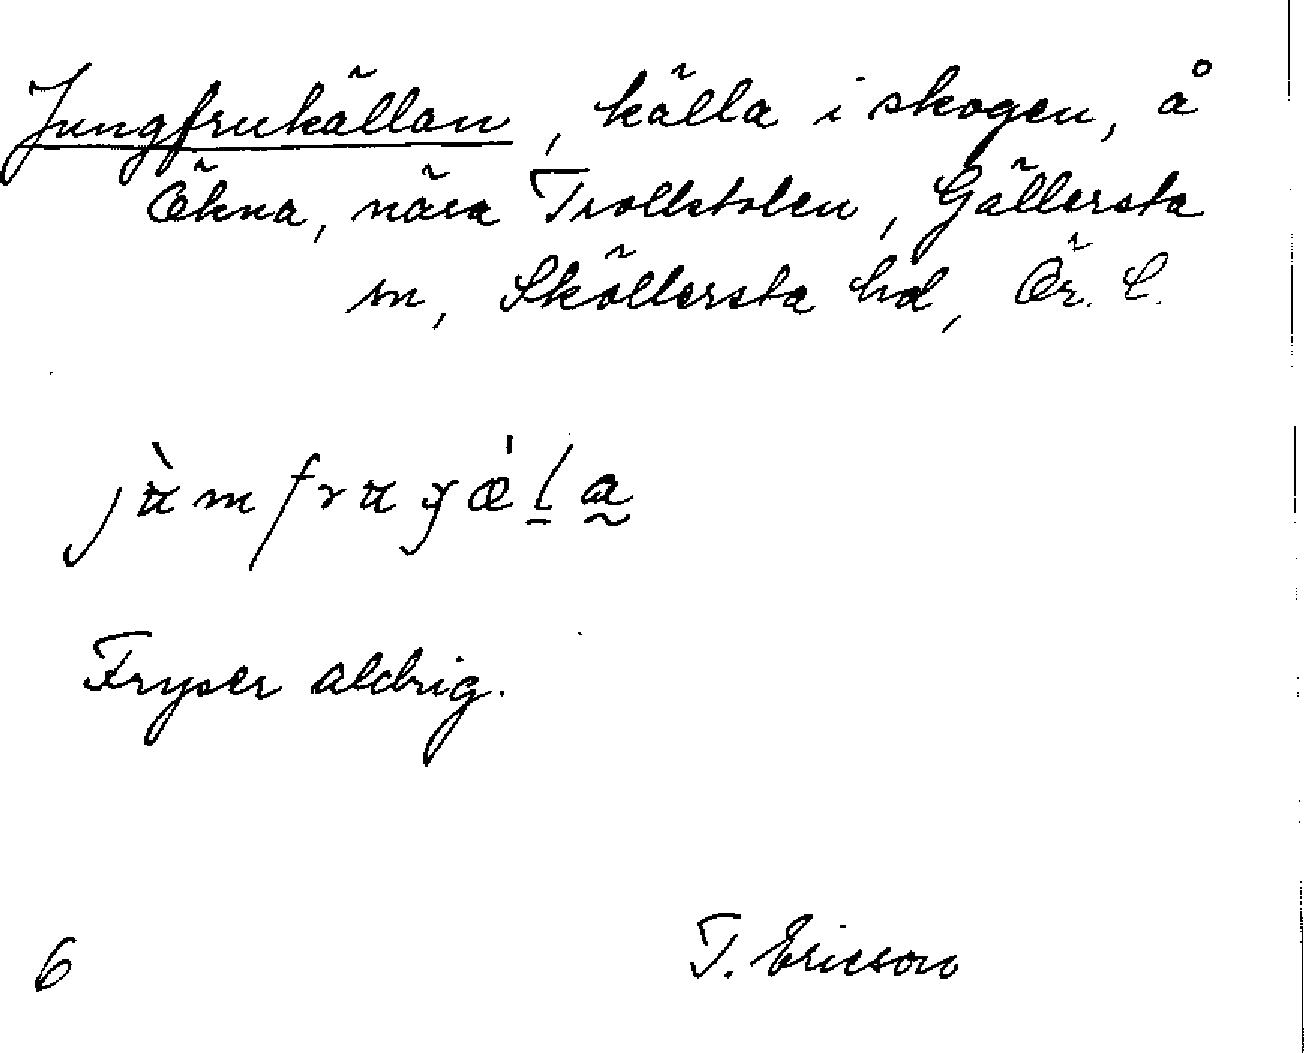 Jungfrukällan, källa i skogen, å
Ökna, nära Trollstolen, Gällersta
sn, Sköllersta hd, Ör. L.
jùmfrugǽla
Fryser aldrig.
6 T. Ericson